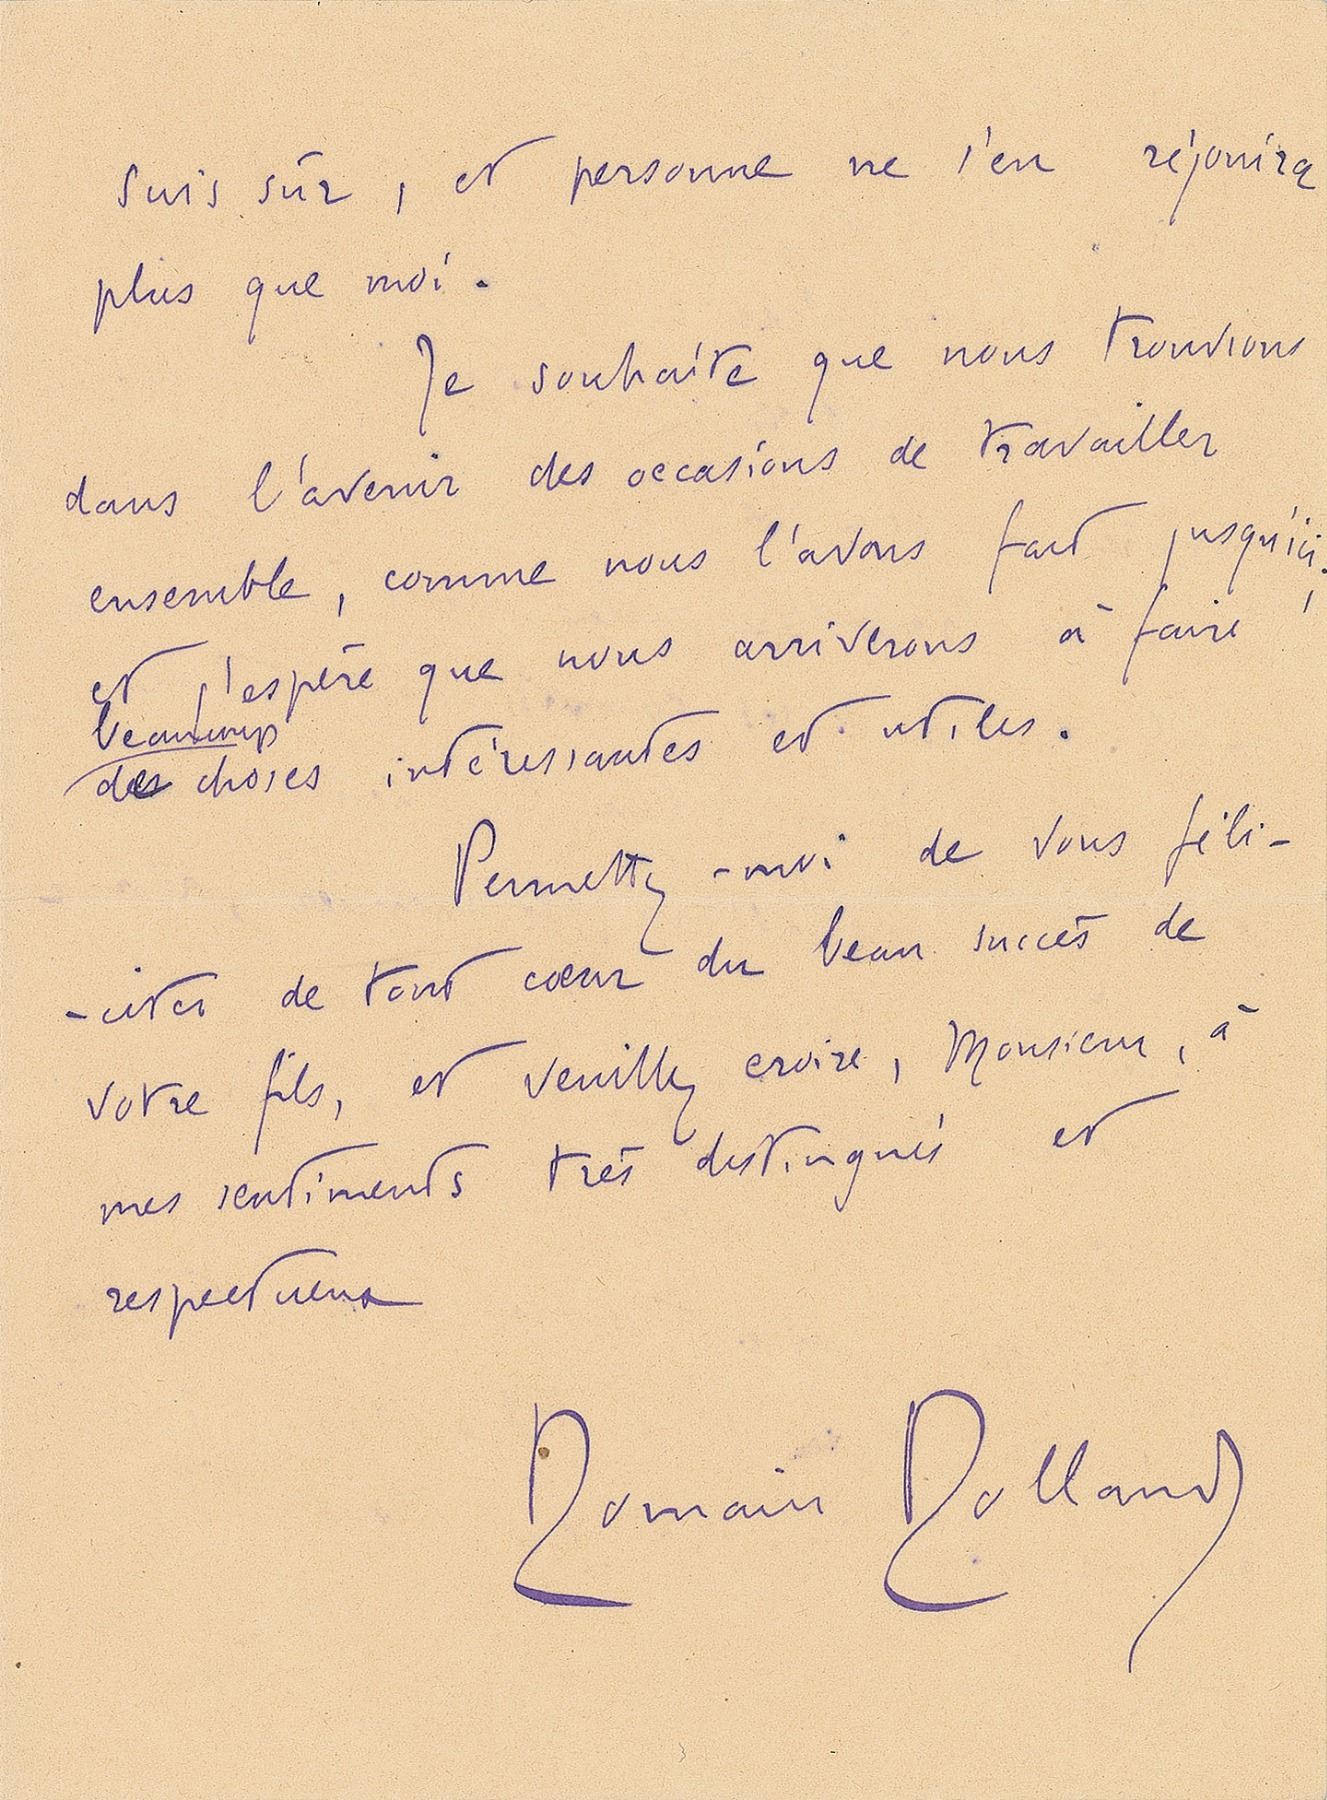 suis sûr, et personne ne s'en réjouira
plus que moi.
Je souhaite que nous trouvions
dans l'avenir des occasions de travailler
ensemble, comme nous l'avons fait jusqu'ici,
et j'espère que nous arriverons à faire
beaucoup
de choses intéressantes et utiles.
Permettez-moi de vous féli-
-citer de tout cœur du beau succès de
votre fils, et veuillez croire, Monsieur, à
mes sentiments très distingués et
respectueux
Romain Rolland